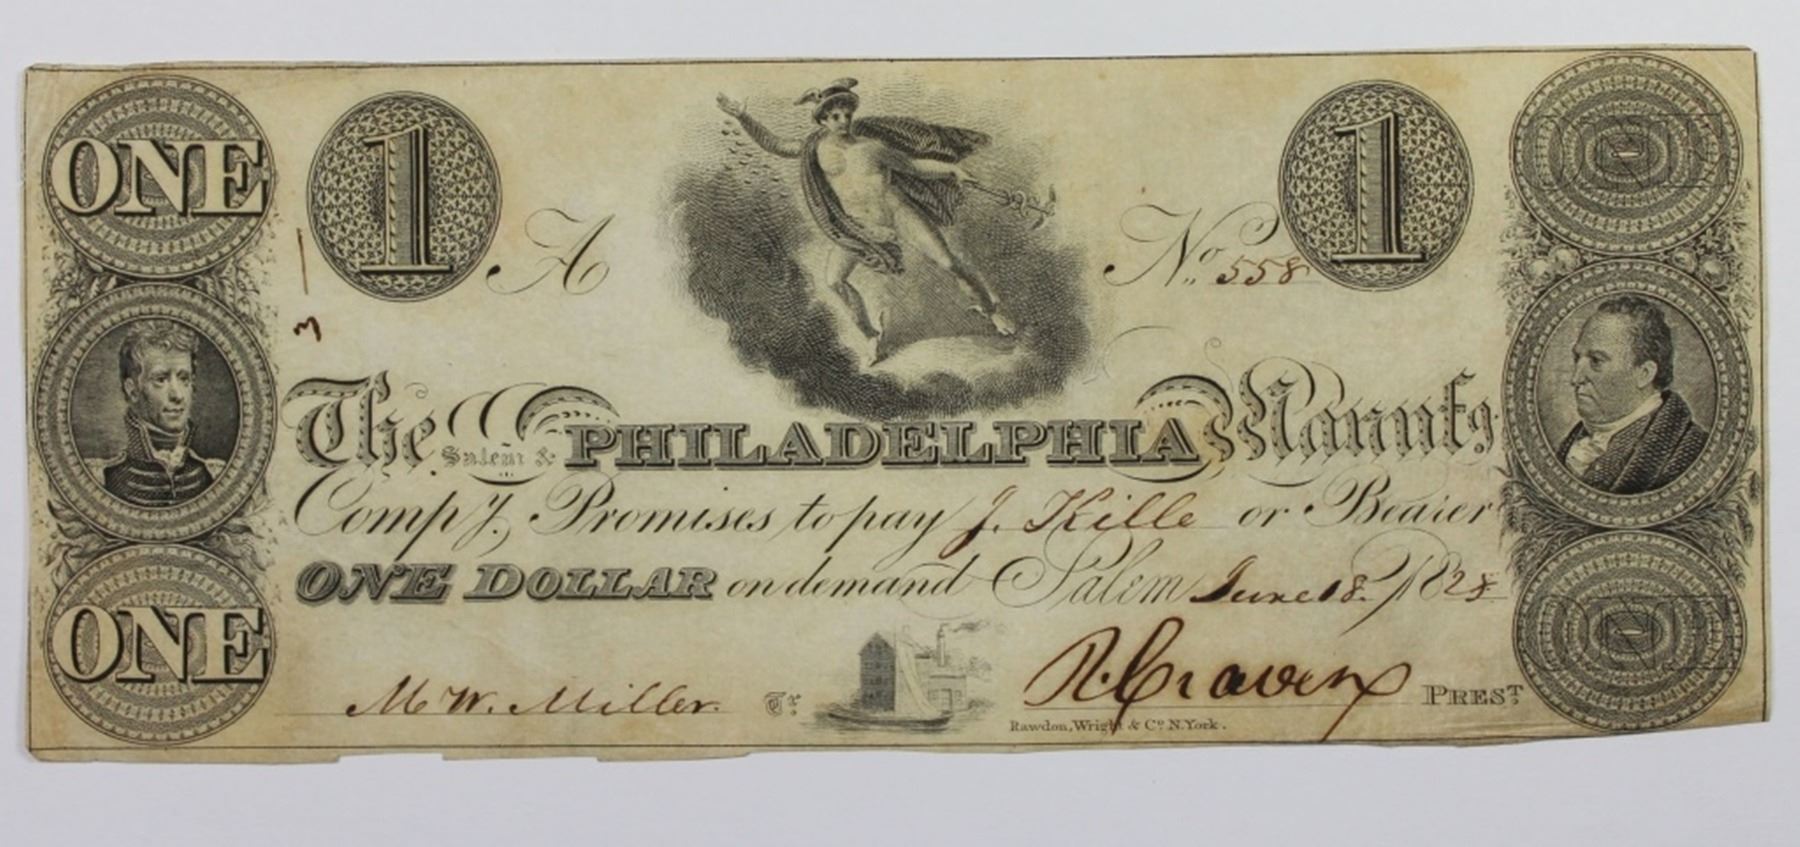 ONE
1
A
No. 558
1
3
The Salem & PHILADELPHIA Manufg
Compy. Promises to pay J. Kille or Bearer
ONE DOLLAR on demand Salem June 18. 1828
ONE
M. W. Miller. Tr.
R. Craven PREST.
Rawdon, Wright & Co. N. York.